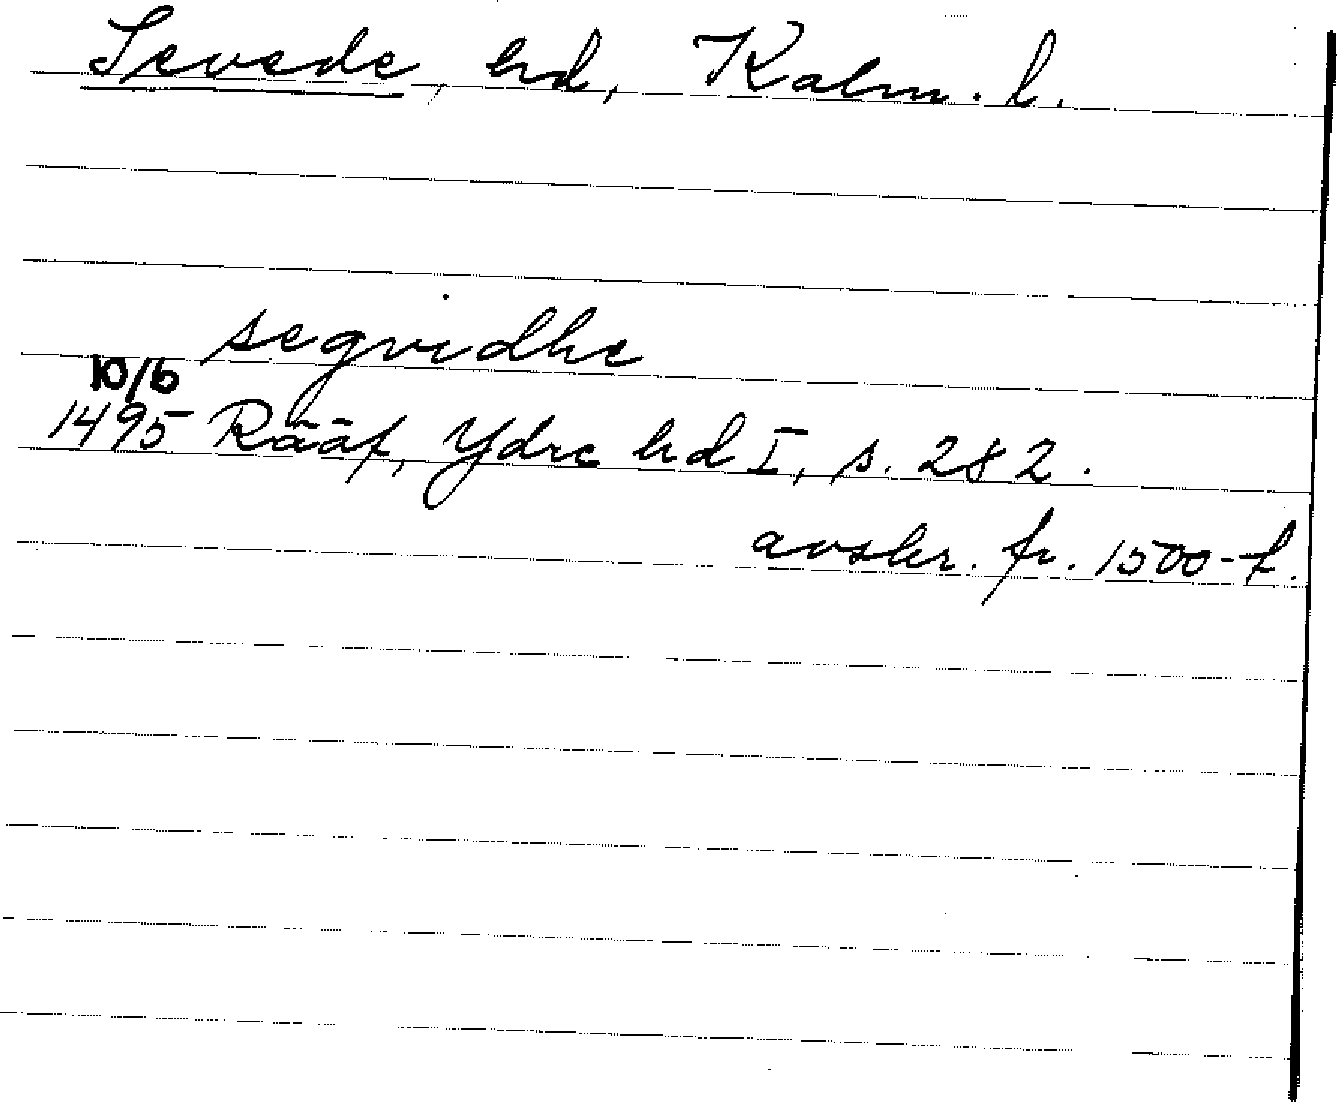 Sevede, hd, Kalm. l.
segvidhe
10/6
1495 Rääf, Ydre hd I, s. 282.
avskr. fr. 1500-t.